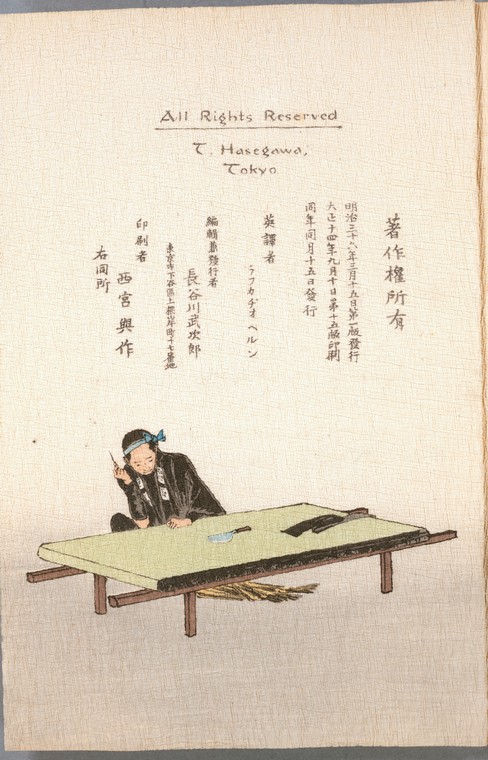 All Rights Reserved
T. Hasegawa,
Tokyo.
著作權所有
明治三十六年三月十五日第一版發行
大正十四年九月十日第十五版印刷
同年同月十五日發行
英譯者
ラフカヂオ ヘルン
編輯兼發行者
長谷川武次郎
東京市下谷區上根岸町十七番地
印刷者
西宮與作
右同所